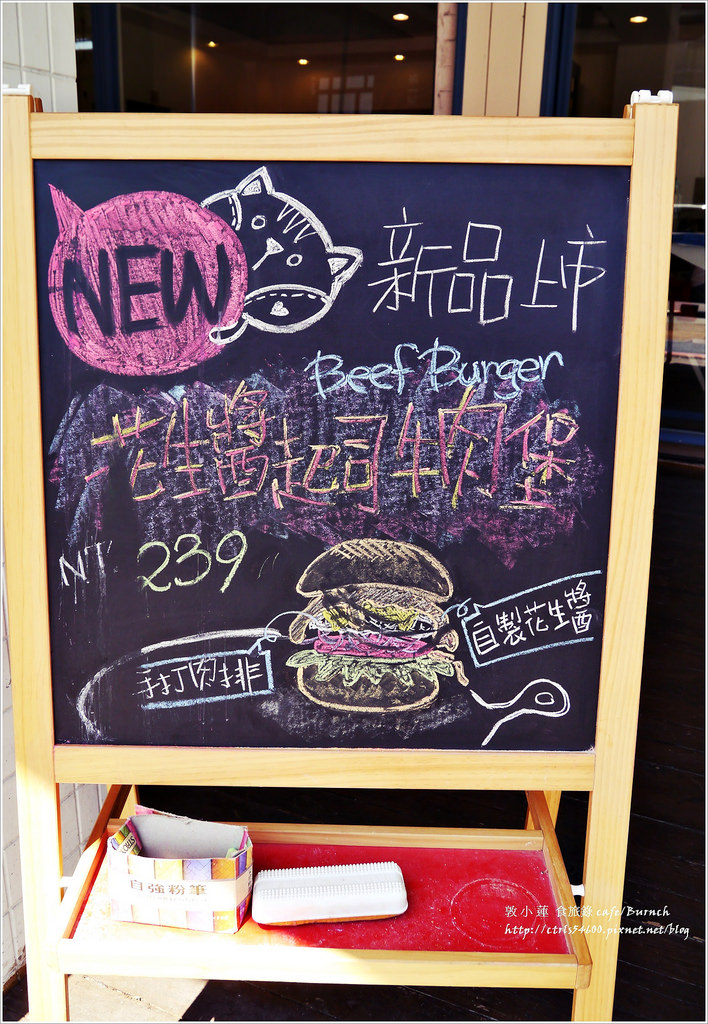 NEW
新品上市
Beef Burger
花生醬起司牛肉堡
NT 239
自製花生醬
手打肉排
自強粉筆
敦小蓮 食旅錄 café/Burnch
http://ctrls54600.pixnet.net/blog